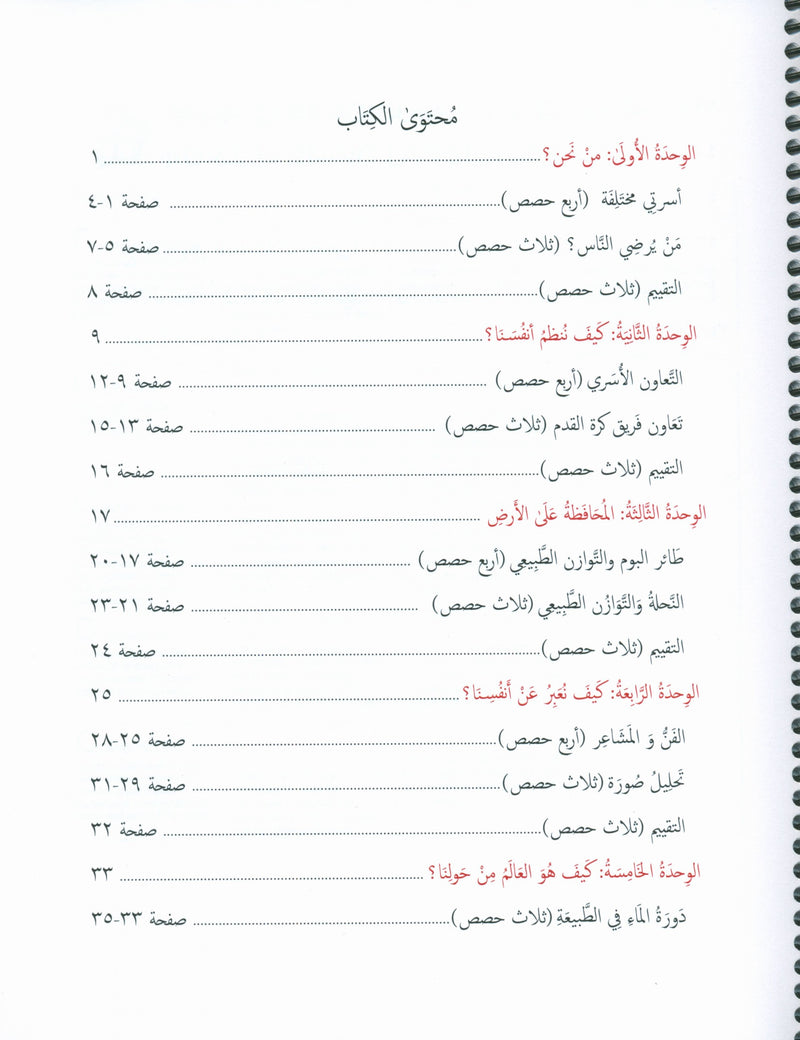 مُحتَوَىٰ الكِتَاب
الوِحدَةُ الأُولَىٰ: منْ نَحن؟ ........ ١
أسرتِي مختَلِفَة (أربع حصص) ........ صفحة ١-٤
مَنْ يُرضِي النَّاس؟ (ثلاث حصص) ........ صفحة ٥-٧
التقييم (ثلاث حصص) ........ صفحة ٨
الوِحدَةُ الثَّانِيَةُ: كَيفَ نُنظمُ أنفُسَنَا؟ ........ ٩
التَّعاون الأُسَري (أربع حصص) ........ صفحة ٩-١٢
تَعَاون فَريق كرة القدم (ثلاث حصص) ........ صفحة ١٣-١٥
التقييم (ثلاث حصص) ........ صفحة ١٦
الوِحدَةُ الثَّالِثَةُ: المُحَافَظةُ عَلَىٰ الأَرضِ ........ ١٧
طَائر البوم والتَّوازن الطَّبِيعي (أربع حصص) ........ صفحة ١٧-٢٠
النَّحلةُ وَالتَّوَازُن الطَّبِيعي (ثلاث حصص) ........ صفحة ٢١-٢٣
التقييم (ثلاث حصص) ........ صفحة ٢٤
الوِحدَةُ الرَّابِعَةُ: كَيفَ نُعَبِرُ عَنْ أَنفُسِنَا؟ ........ ٢٥
الفَنُّ وَ المَشَاعِر (أربع حصص) ........ صفحة ٢٥-٢٨
تَحلِيلُ صُورَة (ثلاث حصص) ........ صفحة ٢٩-٣١
التقييم (ثلاث حصص) ........ صفحة ٣٢
الوِحدَةُ الخَامِسَةُ: كَيفَ هُوَ العَالَمُ مِنْ حَولِنَا؟ ........ ٣٣
دَورَةُ المَاءِ فِي الطَّبِيعَةِ (ثلاث حصص) ........ صفحة ٣٣-٣٥